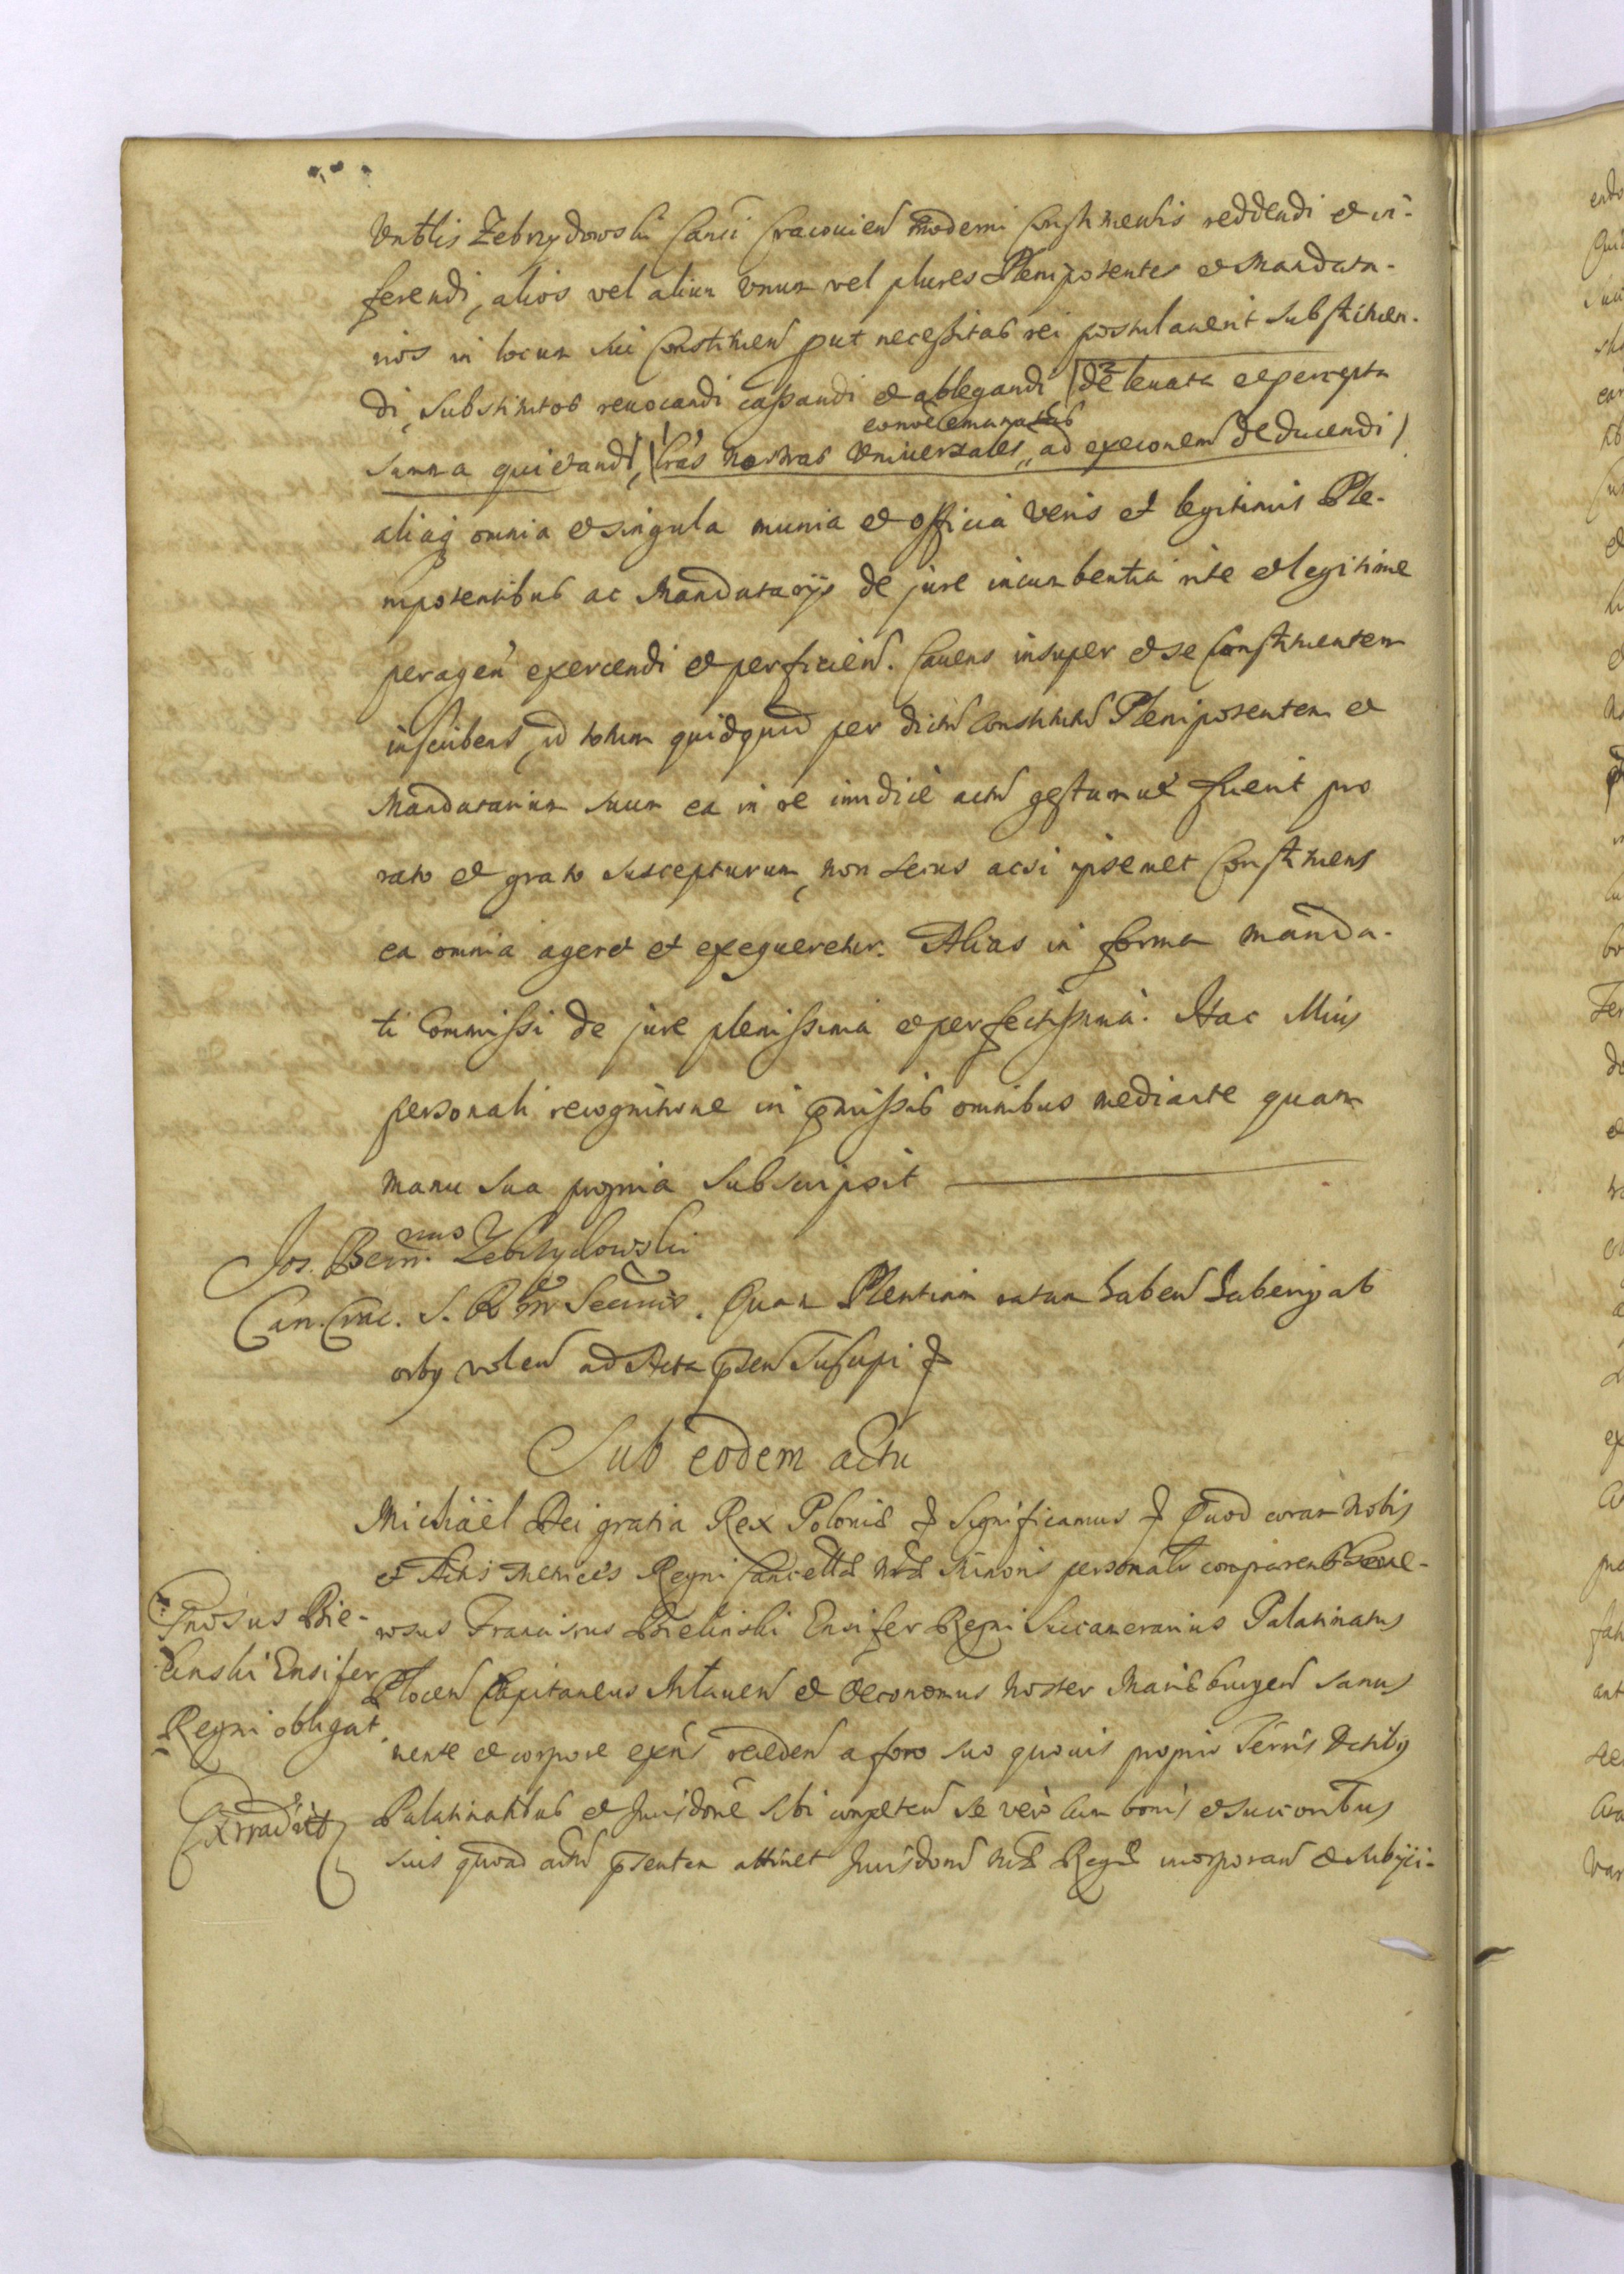 Vnbłis Zebrzydowski Canci Cracouien moderni Constituentis reddendi et in-
ferendi, alios vel alium vnum vel plures Plenipotentes et Mandata-
rios in locum sui Constituen put necessitas rei postulauerit substituen-
di, substitutos reuocandi cassandi et ablegandi (de leuata et percepta
summa quietandi, (Lras nostras Vniuersales, ad execonem deducendi)
aliaq omnia et singula munia et officia veris et legitimis Ple-
nipotentibus ac Mandatarijs de jure incumbentia rite et legitime
peragen exercendi et perficien. Cauens insuper et se Constituentem
inscribens, id totum quidquid per dictu constitutu Plenipotentem et
Mandatarium suum ea in re iuridice actu gestumue fuerit pro
rato et grato suscepturum, non secus acsi ipsemet Constituens
ea omnia ageret et exequeretur. Alias in forma manda-
ti Commissi de jure plenissima et perfectissima. Hac
personali recognitione in pmissis omnibus mediante quam
manu sua propria subscripsit
Jos. Bern. Zebrzydowski
Can. Crac. S. R. M. Secrius. Quam Plentiam ratam haben
volen ad Acta psen Suscepi
Sub eodem actu
Michaël Dei gratia Rex Poloniæ & Significamus & Quod coram Nobis
et Actis Metrices Regni Cancellæ Nræ Minoris personalr comparens Gene-
rosus Franciscus Bielinski Ensifer Regni Succamerarius Palatinatus
Plocen Capitaneus Mlauen et Oeconomus noster Mariæburgen sanus
mente et corpore exns receden a foro suo quouis proprio Terris Dctiby
Palatinatibus et Jurisdone sibi competen se vero cum bonis et succoribus
suis quoad actu psentem attinet Jurisdoni Næ Regæ incorporan et subijci-
Gnosus Bie-
linski Ensifer
Regni obligat.